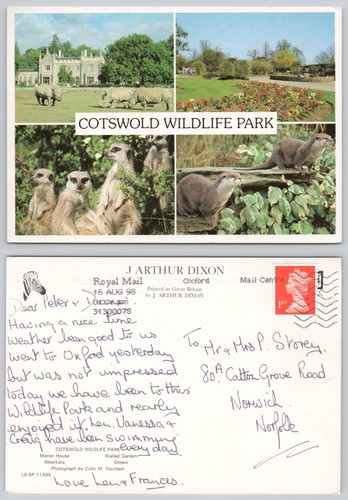 COTSWOLD WILDLIFE PARK
J ARTHUR DIXON
Royal Mail Oxford Mail Centre
16 AUG 98
31300075
Printed in Great Britain
by J. ARTHUR DIXON
1ST
Dear Peter &
Having a nice time
weather been good to us
went to Oxford yesterday
but was not unpressed
today we have been to this
Wildlife Park and really
enjoyed it. Len, Vanessa &
Craig have been swimming
every day
Love Len & Frances.
To
Mr & Mrs P. Storey.
80A Catton Grove Road
Norwich
Norfolk
COTSWOLD WILDLIFE PARK
Manor House Walled Garden
Meerkats Otters
Photograph by Colin M. Fountain
L6/SP.11496